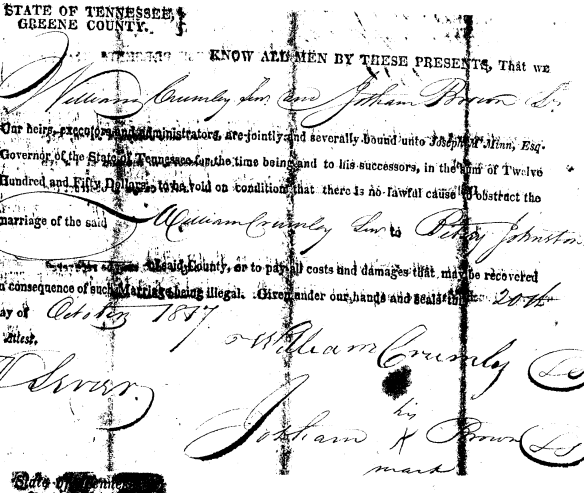 STATE OF TENNESSEE,
GREENE COUNTY.
KNOW ALL MEN BY THESE PRESENTS, That we
William Crumley Sen and Jotham Brown Sr
Our heirs, executors and administrators, are jointly and severally bound unto Joseph M'Minn, Esq.
Governor of the State of Tennessee for the time being and to his successors, in the sum of Twelve
Hundred and Fifty Dollars, to be void on condition that there is no lawful cause to obstruct the
marriage of the said William Crumley Sen to Betsy Johnston
of said County, or to pay all costs and damages that may be recovered
n consequence of such Marriage being illegal. Given under our hands and seals this 20th
ay of October 1817
Attest.
William Crumley LS
Sevier.
his
Jotham X Brown LS
mark
State of Tennessee